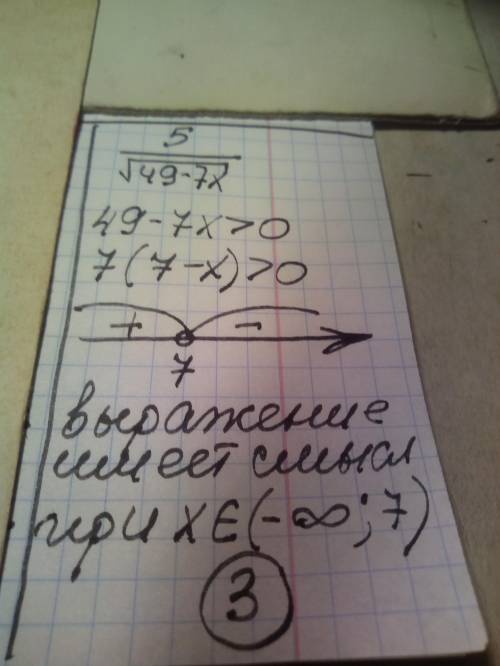 5
√49-7x
49-7x>0
7(7-x)>0
+ -
7
выражение
имеет смысл
при x∈(-∞;7)
3